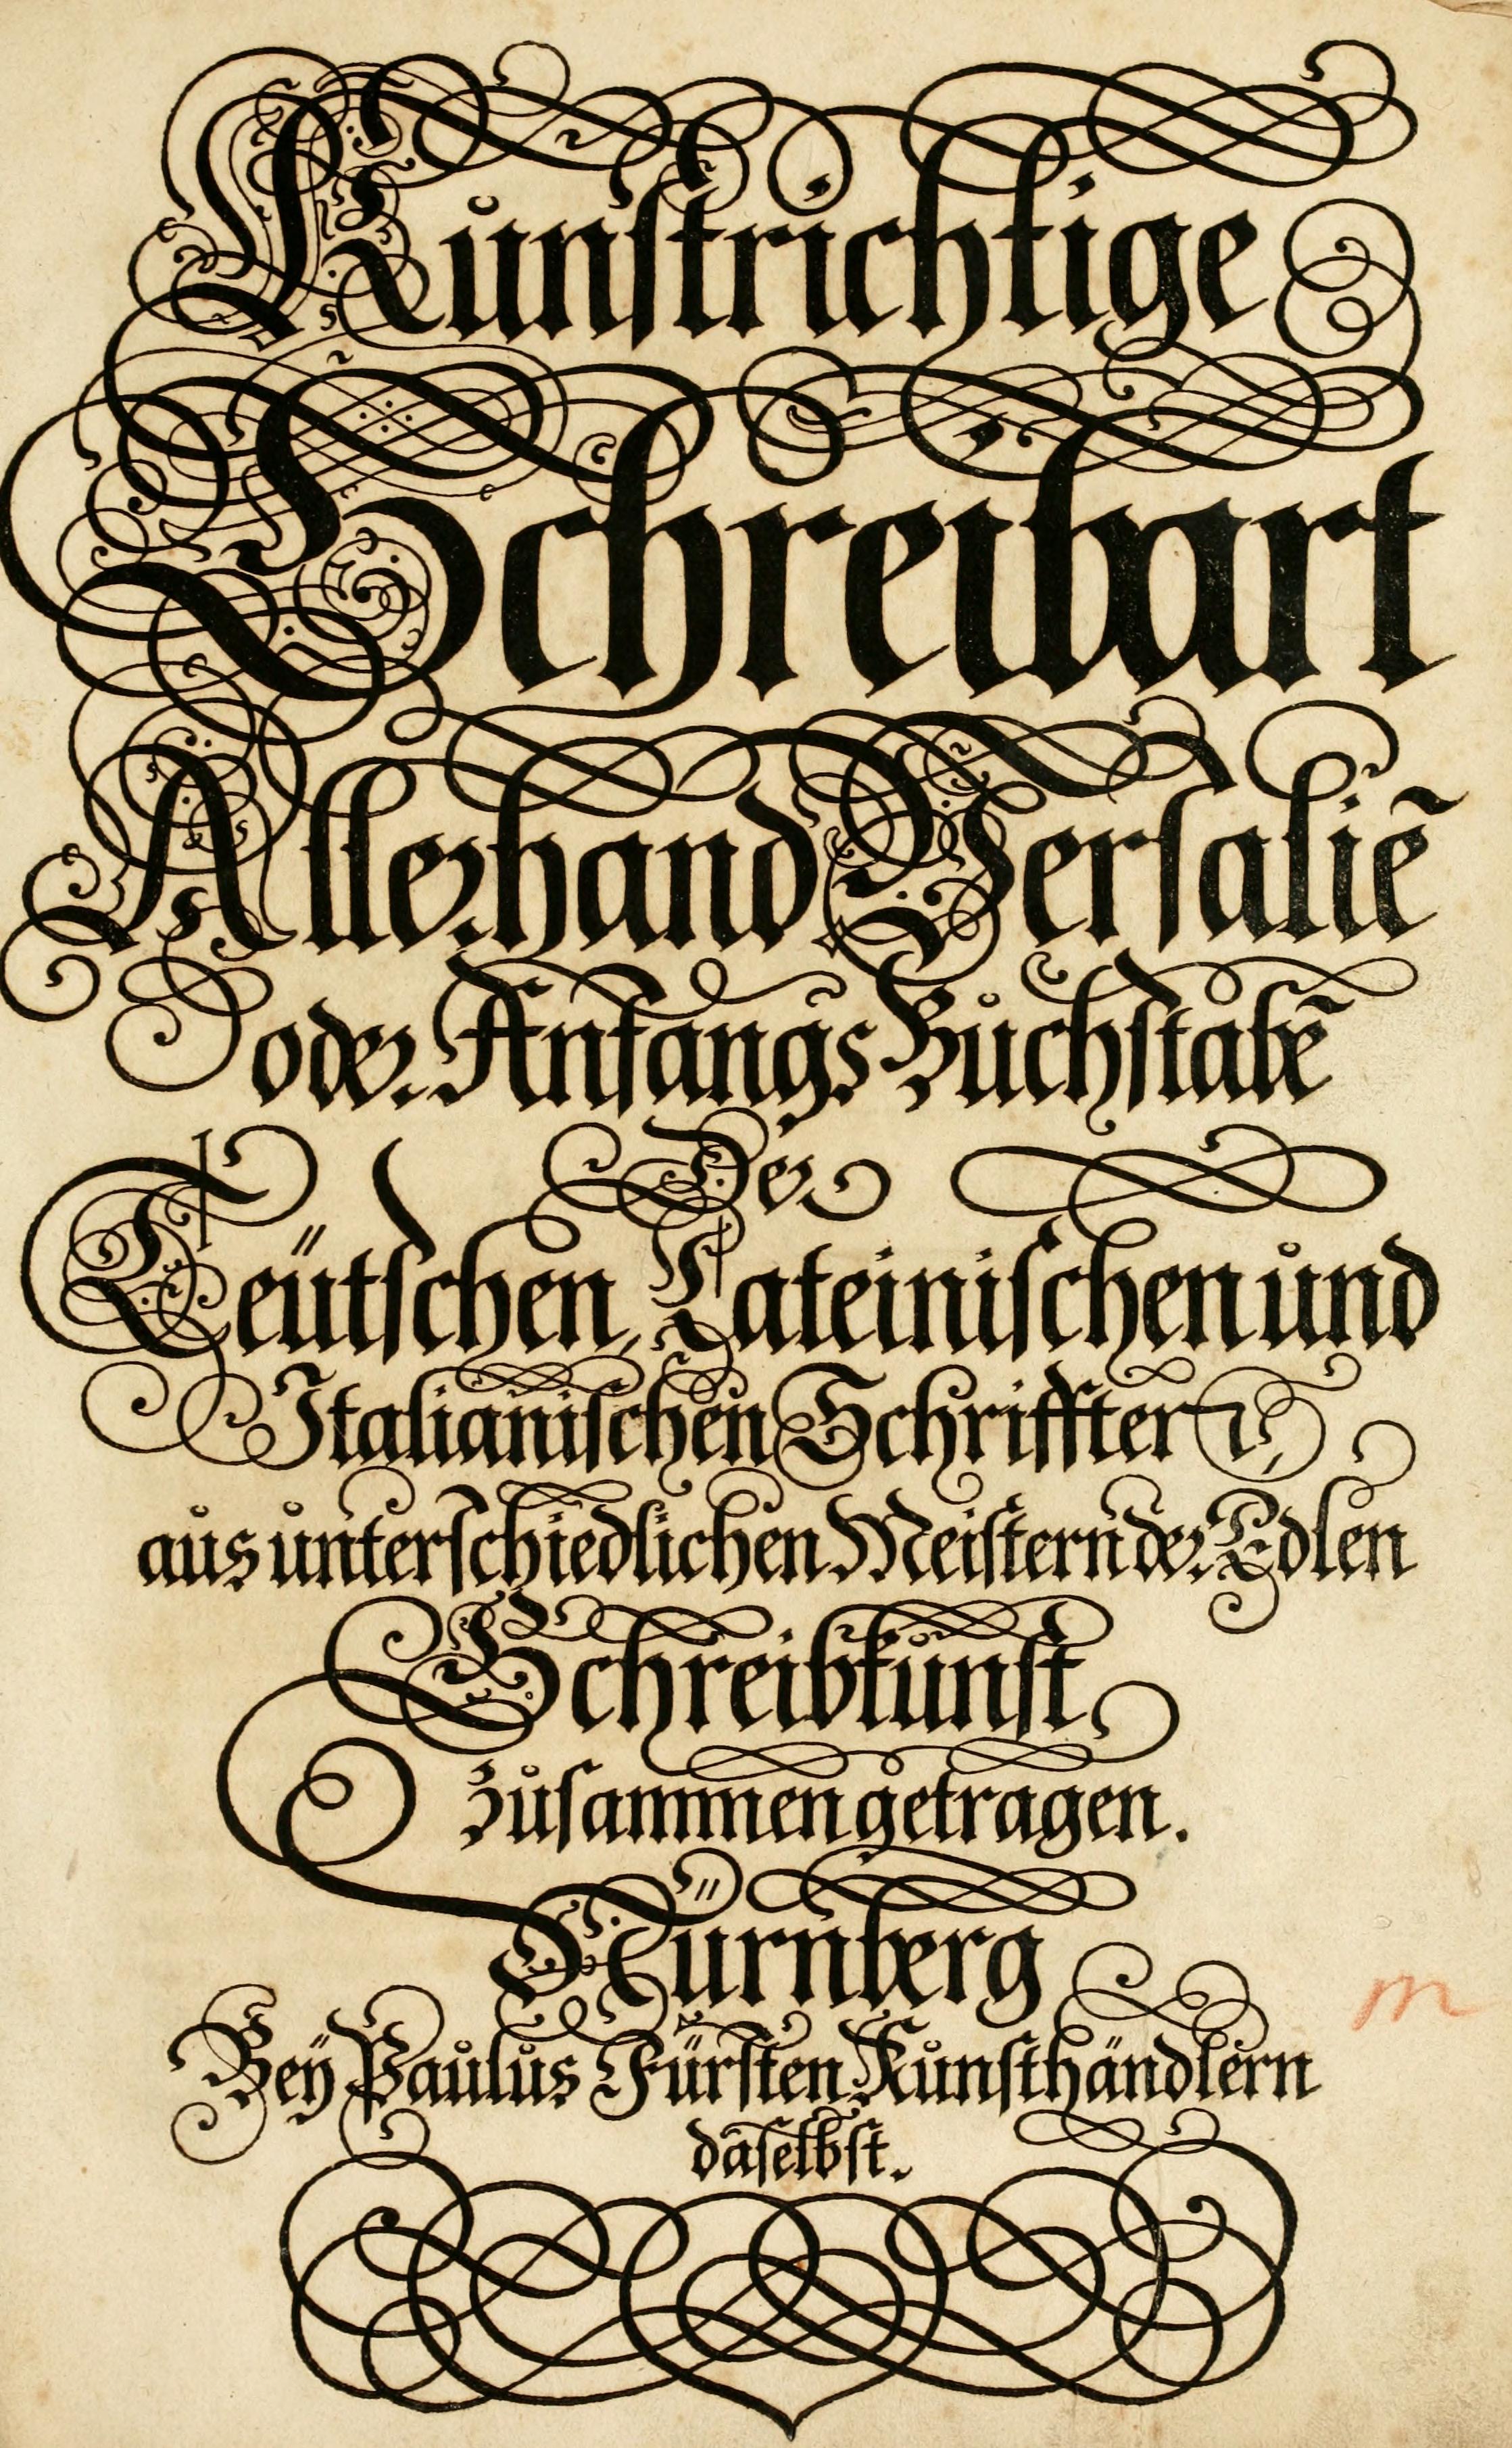 Kůnſtrichtige
Schreibart
Allerhand Verſaliẽ
oder Anfangs Bůchſtabẽ
Der
Teütſchen, Lateinischen ůnd
Italianiſchen Schrifften
aůs ůnterſchiedlichen Meiſtern der Edlen
Schreibkůnſt
Zůſammen getragen.
Nürnberg
Beÿ Paůlůs Fürſten Kůnſthändlern
daſelbſt.
m